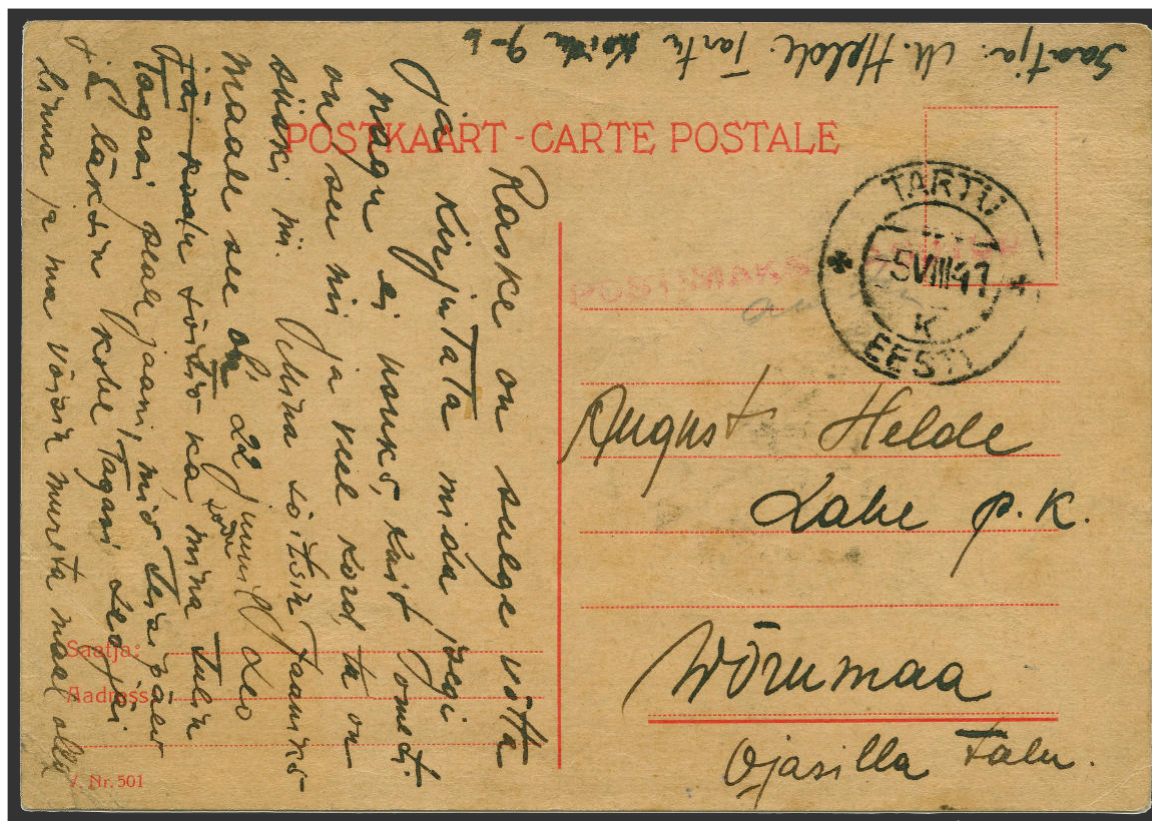 Saatja: M. Helde. Tartu Koidu 9-6
POSTKAART - CARTE POSTALE
TARTU
5 VIII 41
K
EESTI
POSTIMAKS
August Helde
Lahe p.k.
Wõrumaa
Ojasilla talu.
Raske on sulge võtta
ja kirjutata mida isegi
nagu ei usuks, kuid ometi
on su nii ja veel kord ta on
siiski nii. Mina sõitsin Jaaniks
maale see on 22 juunil, Leo
jäi koju tööto ka mina tulin
tagasi peale jaani,
ja läksin kohe tagasi Leo jäi
linna ja ma võisin muretta maal olla
Saatja:
Aadress:
V. Nr. 501